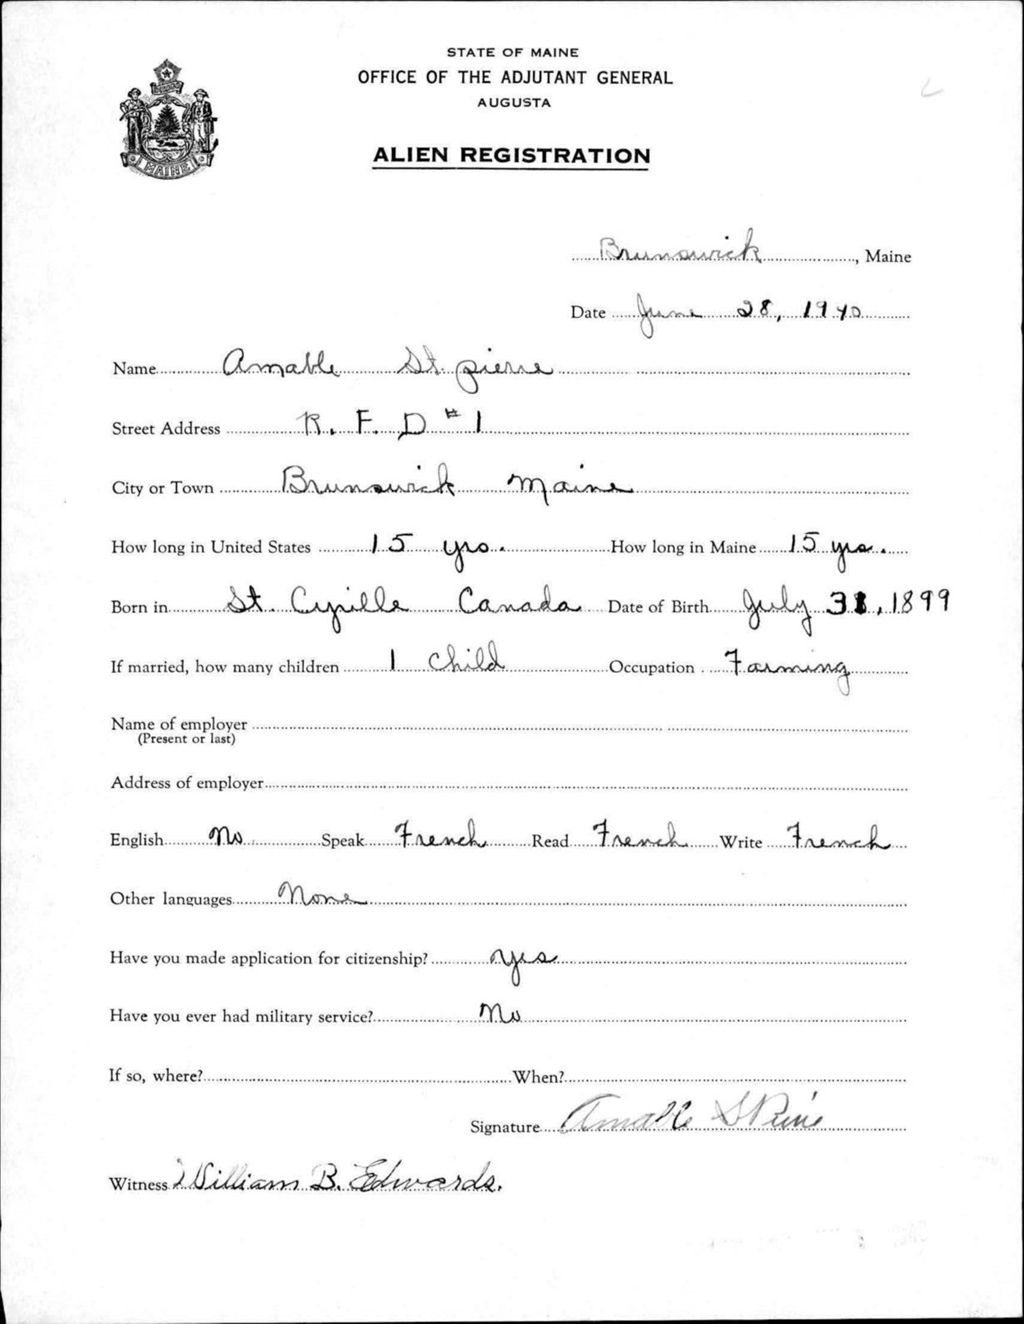 STATE OF MAINE
OFFICE OF THE ADJUTANT GENERAL
AUGUSTA
ALIEN REGISTRATION
MAINE
Brunswick, Maine
Date June 28, 1940
Name Amable St. pierre
Street Address R. F. D #1
City or Town Brunswick Maine
How long in United States 15 yrs. How long in Maine 15 yrs.
Born in St. Cyrille Canada Date of Birth July 31, 1899
If married, how many children 1 child Occupation Farming
Name of employer
(Present or last)
Address of employer
English No Speak French Read French Write French
Other languages None
Have you made application for citizenship? Yes
Have you ever had military service? No
If so, where? When?
Signature Amable St Pierre
Witness William B. Edwards.